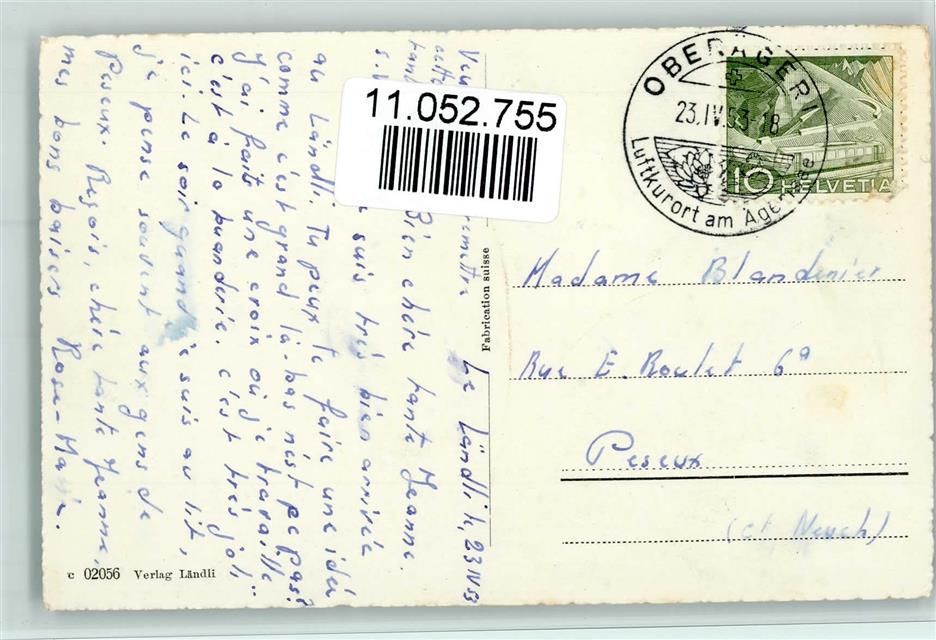 Le Ländli, 23 IV 53
Bien chère tante Jeanne.
suis très bien arrivée
au Ländli. Tu peux te faire une idée
comme c'est grand là-bas n'est pe pas?
J'ai faite une croix où je travaille
c'est à la buanderie. c'est très joli
ici. Le soir quand je suis au lit,
je pense souvent aux gens de
Peseux. Reçois, chère tante Jeanne,
mes bons baisers Rose-Marie.
c 02056 Verlag Ländli
Fabrication suisse
11.052.755
OBERÄGERI
23.IV.53-18
Luftkurort am Ägerisee
10 HELVETIA
Madame Blandenier
Rue E. Roulet 6a
Peseux
(ct Neuch)